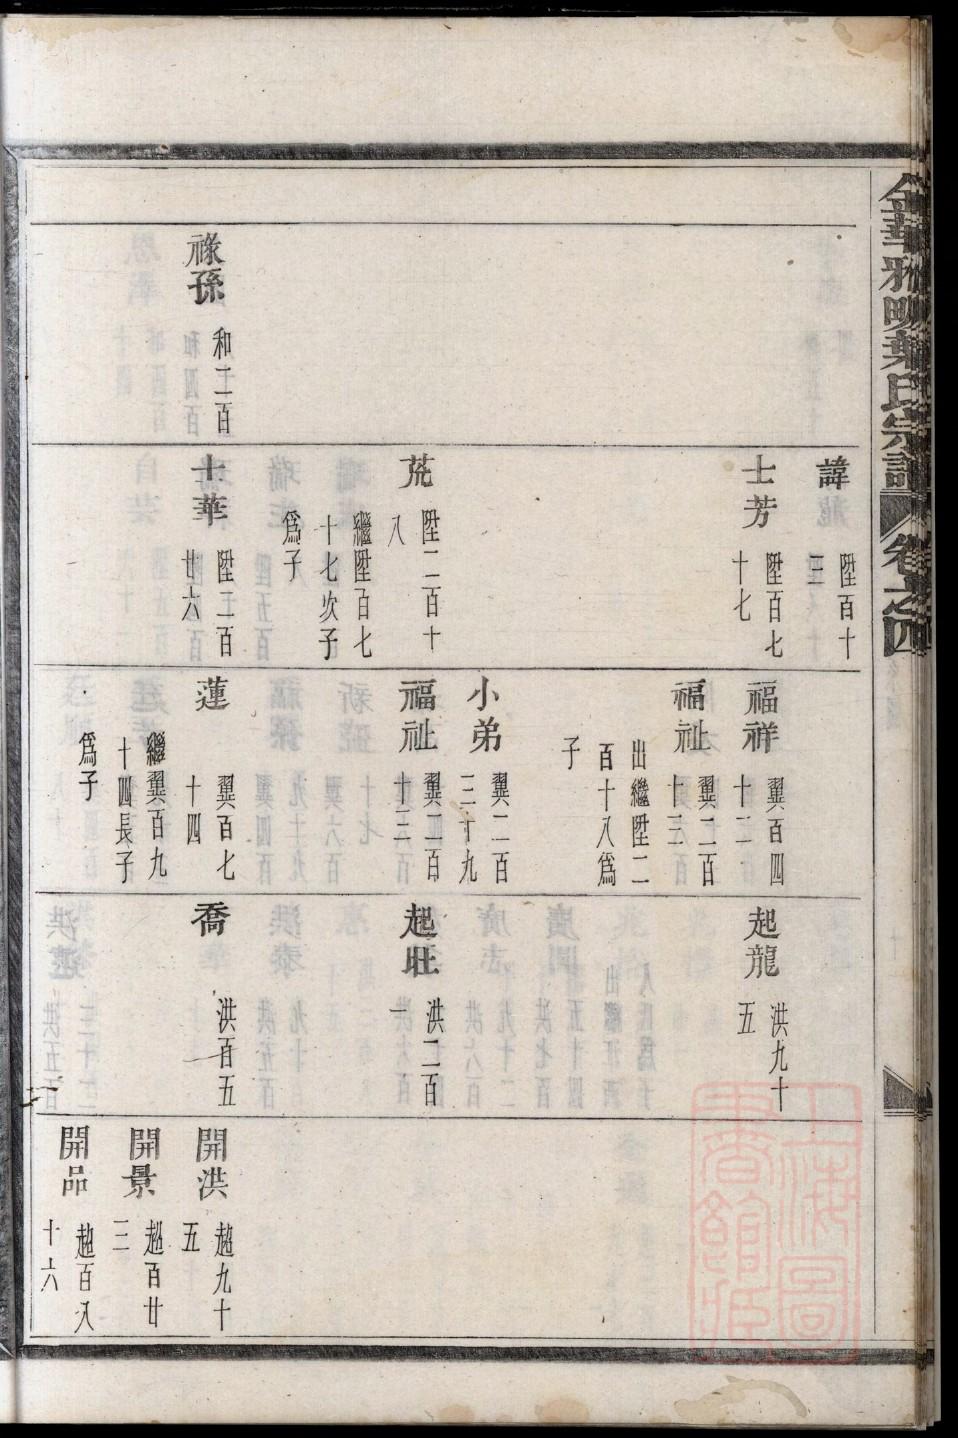 金華雅畈葉氏宗譜
卷之四
祿孫
和二百
諱龍
陞百十
三
士芳
陞百七
十七
荒
陞二百十
八
繼陞百七
十七次子
爲子
士華
陞二百
廿六
福祥
翼百四
十二
福祉
翼二百
十三
出繼陞二
百十八爲
子
小弟
翼二百
三十九
福祉
翼二百
十三
蓮
翼百七
十四
繼翼百九
十四長子
爲子
起龍
洪九十
五
起旺
洪二百
一
喬
洪百五
開洪
趙九十
五
開景
趙百廿
三
開品
趙百八
十六
上海圖
書館藏